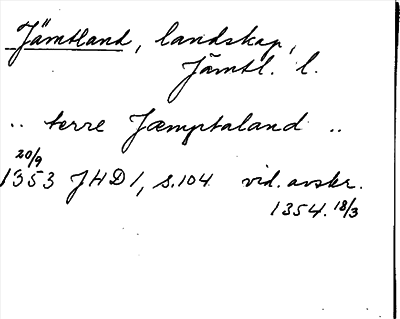 Jämtland, landskap,
Jämtl. l.
.. terre Jæmptaland ..
20/9
1353 JHD 1, s. 104. vid. avskr.
1354. 18/3